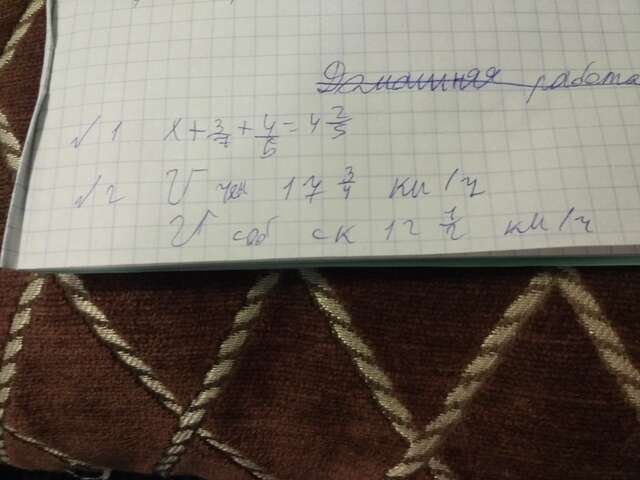 Домашняя работа
√ 1 x + 3/7 + 4/5 = 4 2/5
√ 2 V 17 3/4 км/ч
V соб ск 12 1/2 км/ч